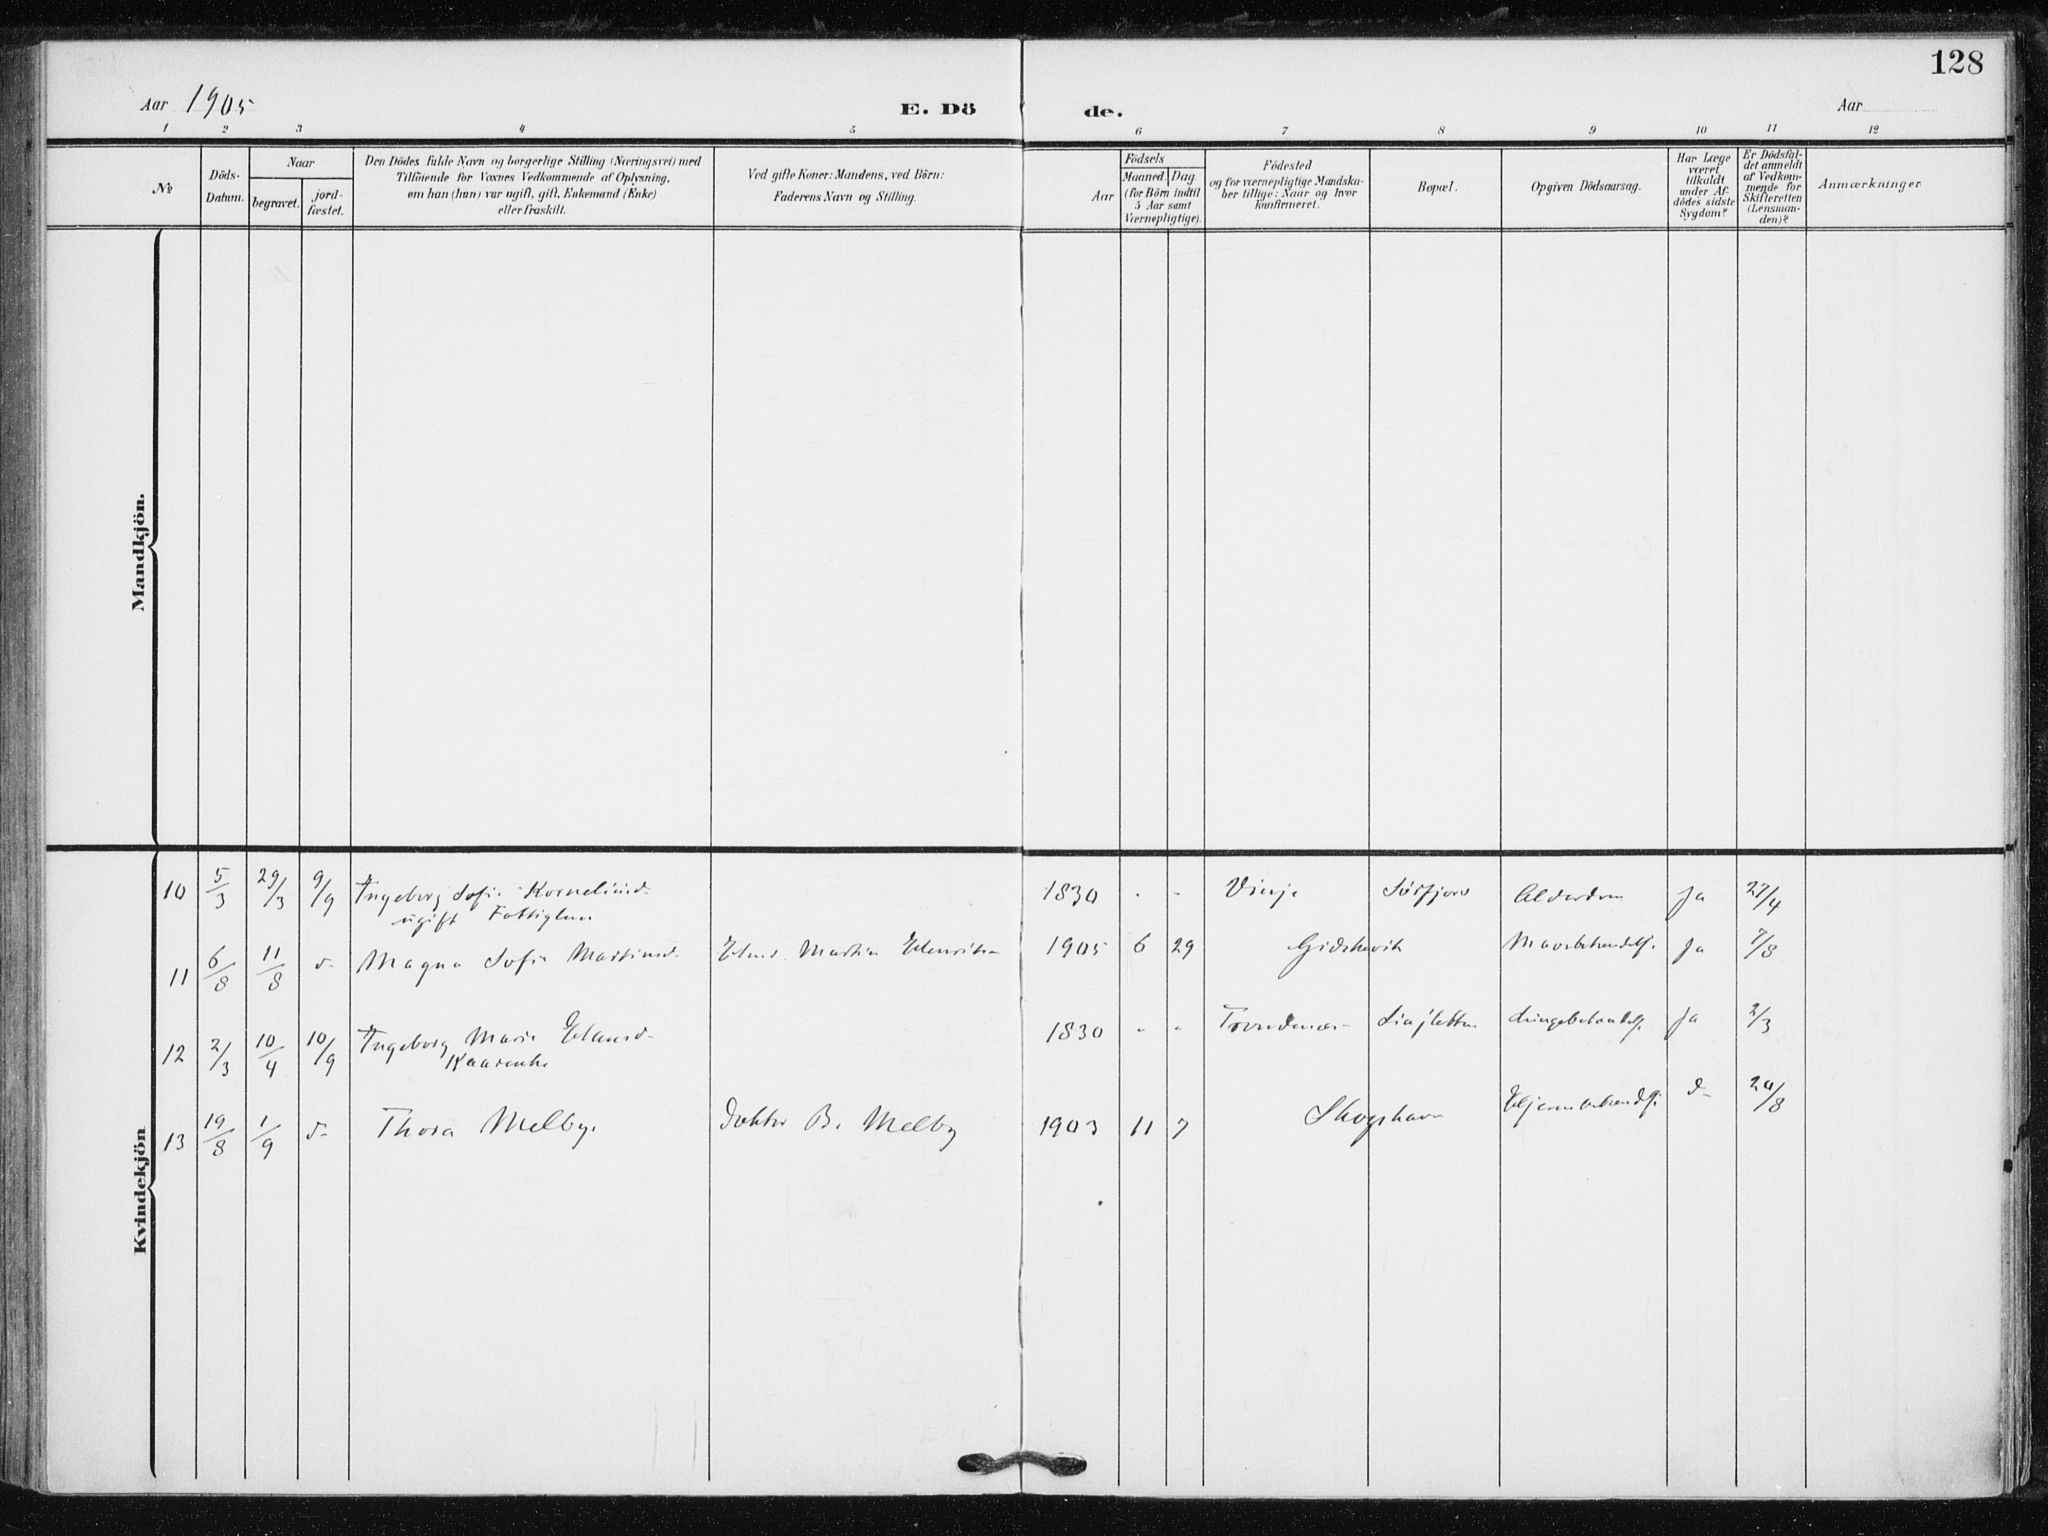 128
Aar 1905 E. Dö de. Aar
1 2 3 4 5 6 7 8 9 10 11 12
No
Döds-Datum.
Naar
begravet.
jord-fæstet.
Den Dödes fulde Navn og borgerlige Stilling (Næringsvei) med
Tilföiende for Voxnes Vedkommende af Oplysning,
om han (hun) var ugift, gift, Enkemand (Enke)
eller fraskilt.
Ved gifte Koner: Mandens, ved Börn:
Faderens Navn og Stilling.
Födsels
Aar
Maaned. Dag
(for Börn indtil
5 Aar samt
Værnepligtige).
Födested
og for værnepligtige Mandska-
ber tillige: Naar og hvor
konfirmeret.
Bopæl.
Opgiven Dödsaarsag.
Har Læge
været
tilkaldt
under Af-
dödes sidste
Sygdom?
Er Dödsfal-
det anmeldt
af Vedkom-
mende for
Skifteretten
(Lensman-
den)?
Anmærkninger
Mandkjön.
Kvindekjön
10 5/3 29/3 9/9 Ingeborg Sofie Korneliusd. 1830 - - Vinje Sörfjord Alderdom Ja 27/4
ugift Fattiglem
11 6/8 11/8 d- Magna Sofie Martinsd. Martin 1905 6 29 Gidskevik Ja 7/8
12 2/3 10/4 10/9 Ingeborg Marie 1830 - - Ja 2/3
Kaarenke
13 19/8 1/9 d- Thora Melby. Doktor B. Melby 1903 11 7 Skogshavn d- 20/8